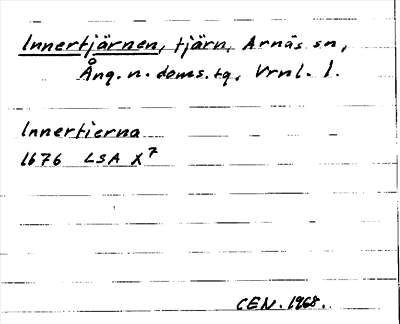 Innertjärnen, tjärn, Arnäs sn,
Ång. n. doms. tg, Vrnl. l.
Innertierna
1676 LSA X7
CEN. 1968.